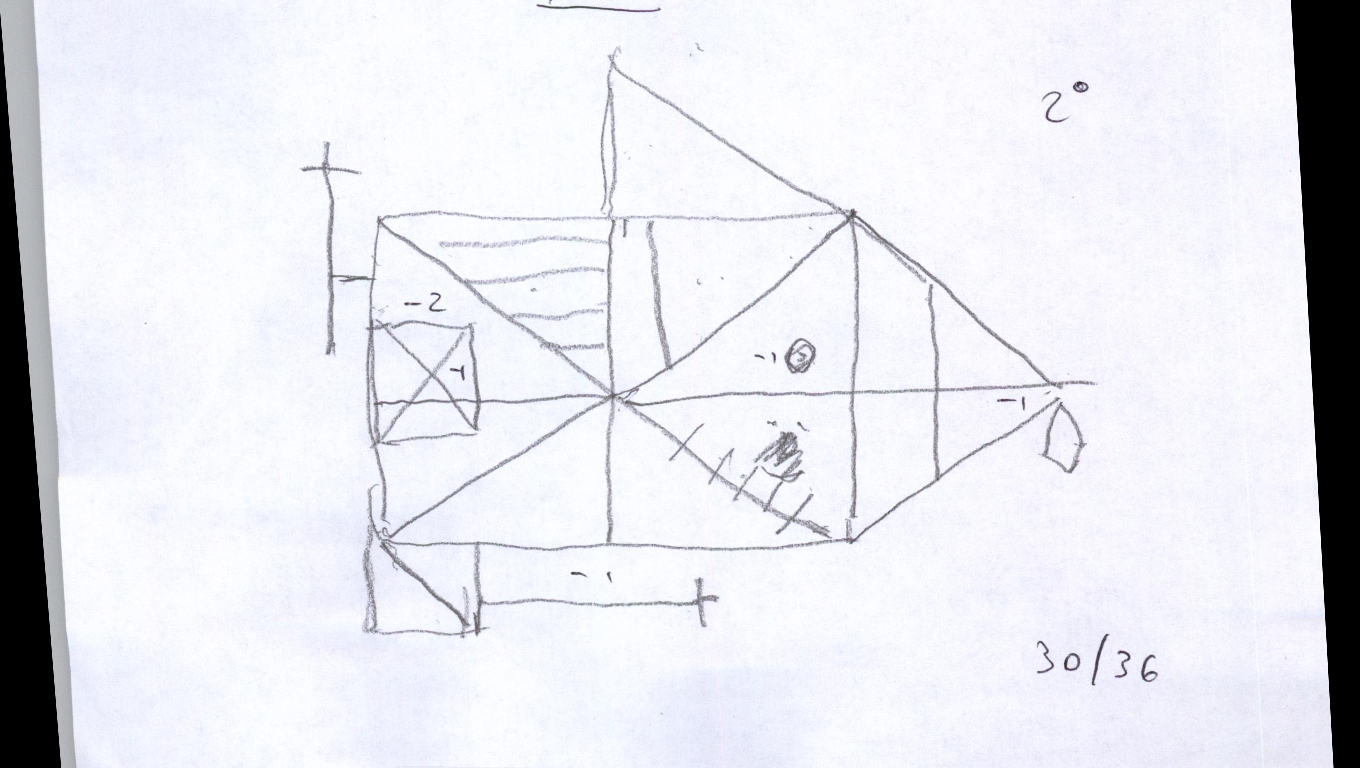 2°
-2
-1
-1
-1
-1
30/36